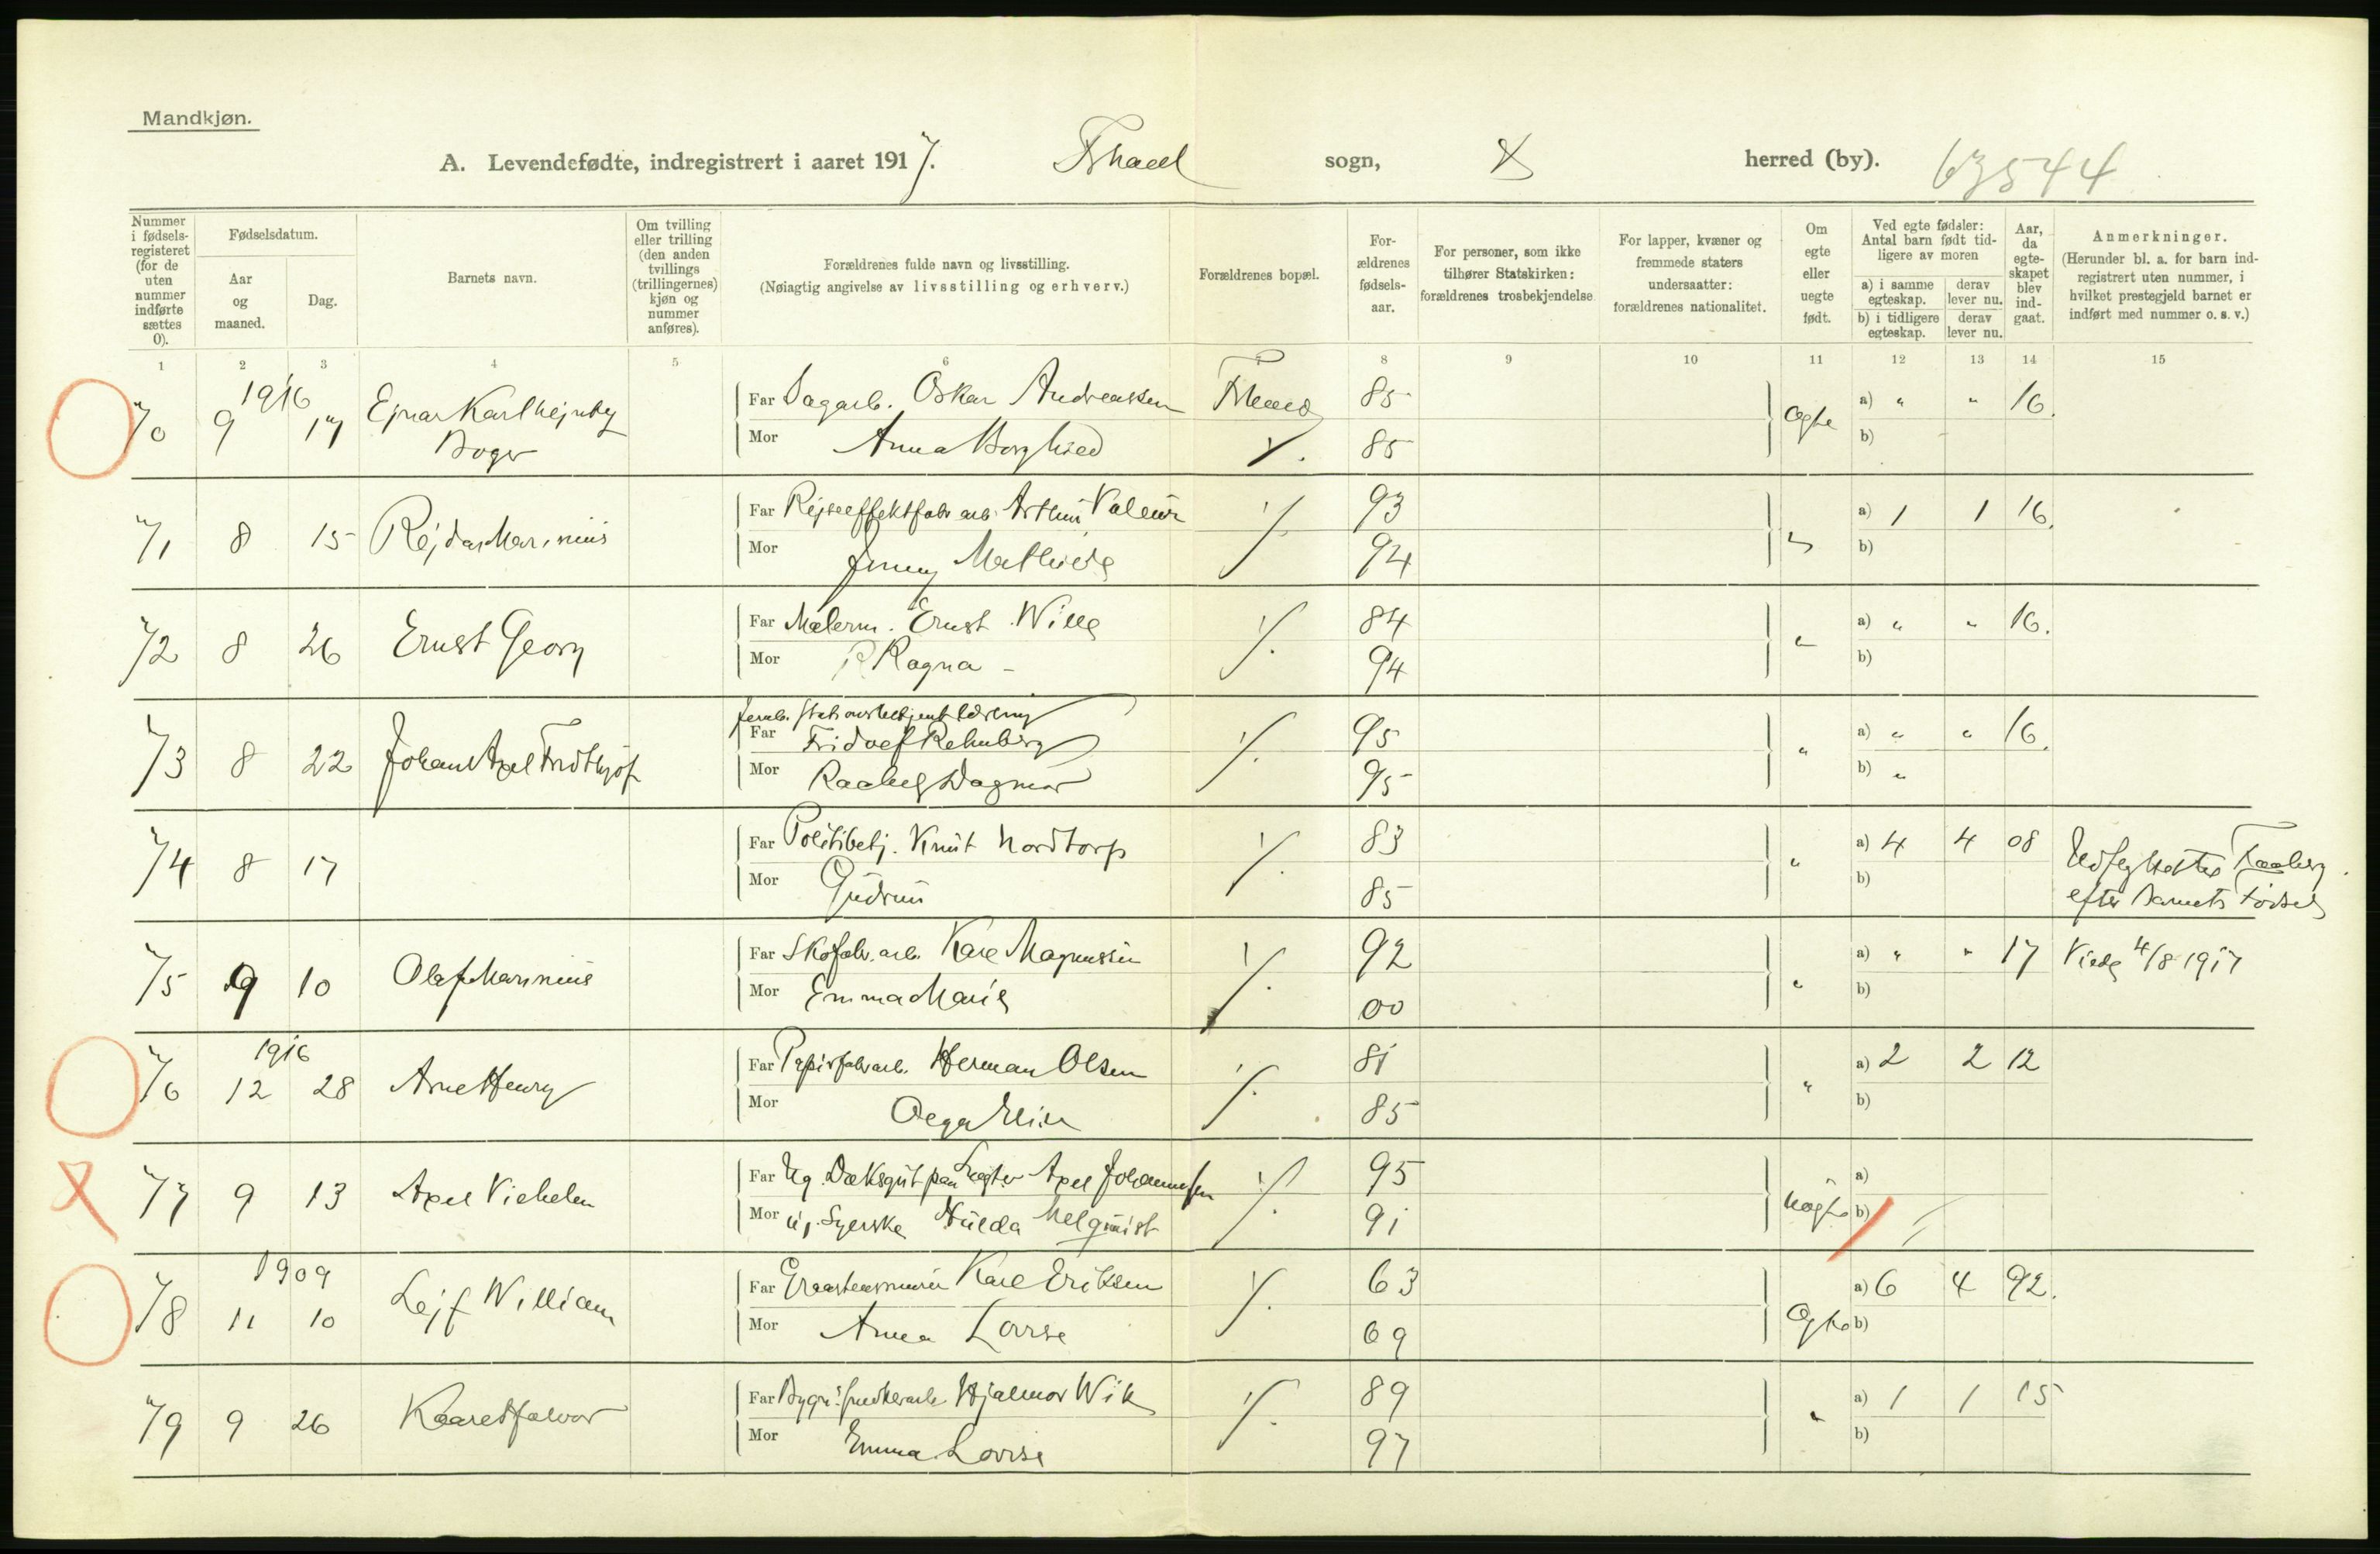 Mandkjøn.
A. Levendefødte, indregistrert i aaret 1917. sogn, herred (by). 63544
Nummer i fødselsregisteret (for de uten nummer indførte sættes 0).
Fødselsdatum.
Aar og maaned.
Dag.
Barnets navn.
Om tvilling eller trilling (den anden tvillings (trillingernes) kjøn og nummer anføres).
Forældrenes fulde navn og livsstilling.
(Nøiagtig angivelse av livsstilling og erhverv.)
Forældrenes bopæl.
For-ældrenes fødsels-aar.
For personer, som ikke tilhører Statskirken: forældrenes trosbekjendelse
For lapper, kvæner og fremmede staters undersaatter: forældrenes nationalitet.
Om egte eller uegte født.
Ved egte fødsler: Antal barn født tid-ligere av moren
a) i samme egteskap. derav lever nu.
b) i tidligere egteskap. derav lever nu.
Aar, da egte-skapet blev ind-gaat.
Anmerkninger.
(Herunder bl. a. for barn ind-registrert uten nummer, i hvilket prestegjeld barnet er indført med nummer o. s. v.)
1 2 3 4 5 6 7 8 9 10 11 12 13 14 15
1916
70 9 17 Ejnar Karl Far Sagarb. Oskar Andreassen 85 Egte a) " " 16.
Roger Mor Anna Borghild 85 b)
71 8 15 Rejdar Marinius Far Rejseeffektfabr. arb. Arthur 93 a) 1 1 16.
Mor Jenny Mathilde 94 b)
72 8 26 Ernst Georg Far Malerm. Ernst Wille 84 " a) " " 16.
Mor Ragna - 94 b)
Jernb. stationsbetjent
73 8 22 Johan Axel Fridthjof Far Fridolf Rehnberg 95 " a) " " 16.
Mor Dagmar 95 b) "
74 8 17 Far Politibetj. Knut Nordtorp 83 " a) 4 4 08
Mor Gudrun 85 b) efter Barnets Fødsel
75 9 10 Olaf Marinius Far Skofabr. arb. Karl Magnussen 92 " a) " " 17 Viede 4/8 1917
Mor Emma Marie 00 b)
1916
76 12 28 Arne Henry Far Papirfabr.arb. Herman Olsen 81 " a) 2 2 12
Mor Olga Elise 85 b)
77 9 13 Axel Vilhelm Far Ug. Dæksgut paa Axel Johannessen 95 Uegte a)
Mor ug. Syerske Hulda Melqvist 91 b)
1909
78 11 10 Lejf William Far Karl Eriksen 63 Egte a) 6 4 92.
Mor Anna Lovise 69 b)
79 9 26 Kaare Halvor Far Hjalmar Wik 89 " a) 1 1 15
Mor Emma Lovise 97 b)